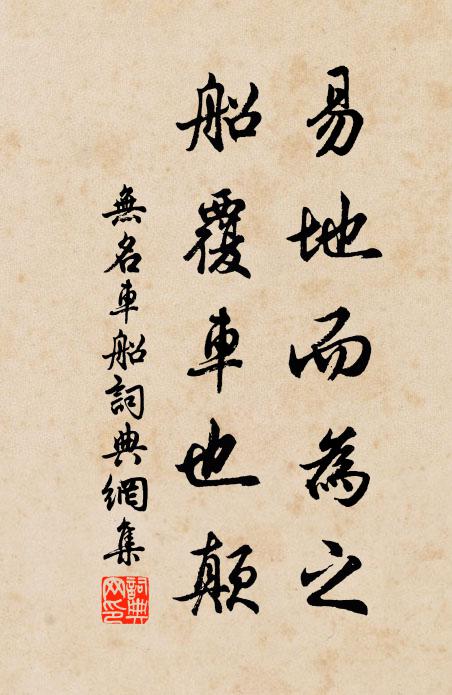 易地而為之
船覆車也顛
無名車船詞典網集
詞典网印